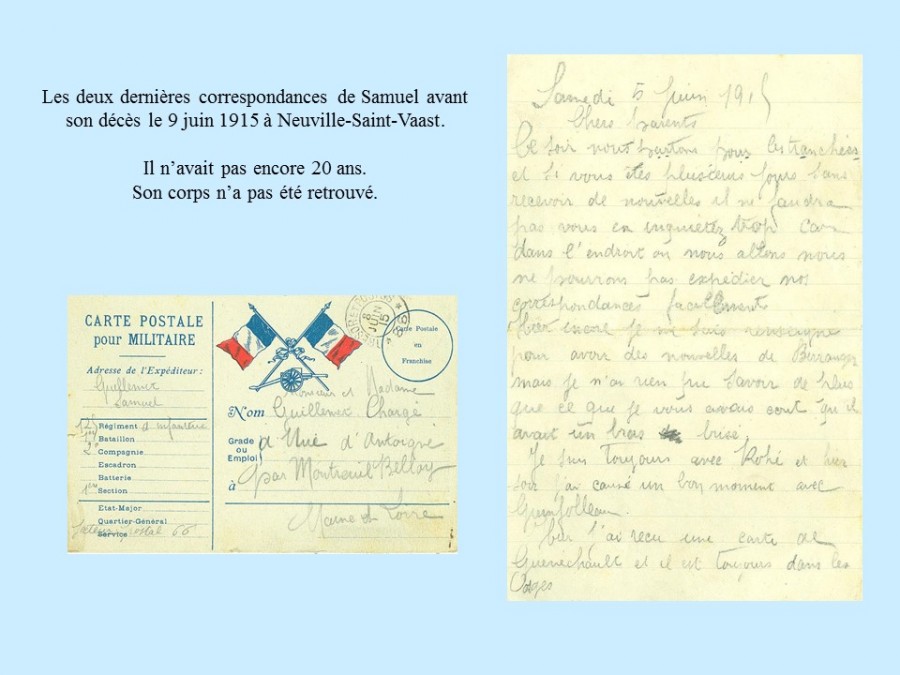 Les deux dernières correspondances de Samuel avant
son décès le 9 juin 1915 à Neuville-Saint-Vaast.
Il n’avait pas encore 20 ans.
Son corps n’a pas été retrouvé.
CARTE POSTALE
pour MILITAIRE
Adresse de l'Expéditeur :
Samuel
Régiment d infanterie
Bataillon
2e Compagnie
Escadron
Batterie
Section
Etat-Major
Quartier-Général
Service
postal 66
8
JUIN
15
Carte Postale
en
Franchise
Monsieur et Madame
Nom
Grade
ou
Emploi
d'Antoigné
à par Montreuil Bellay
Maine et Loire
Samedi 5 Juin 1915
Chers parents
Ce soir nous partons pour les tranchées
et si vous êtes plusieurs jours sans
recevoir de nouvelles il ne faudra
pas vous en inquiétez trop car
dans l'endroit ou nous allons nous
ne pourrons pas expédier nos
correspondances facilements
Hier encore je me suis renseigné
pour avoir des nouvelles de
mais je n'ai rien pu savoir de plus
que ce que je vous avais écrit qu'il
avait un bras brisé.
Je suis toujours avec et hier
soir j'ai causé un bon moment avec
j'ai reçu une carte de
et il est toujours dans les
Vosges